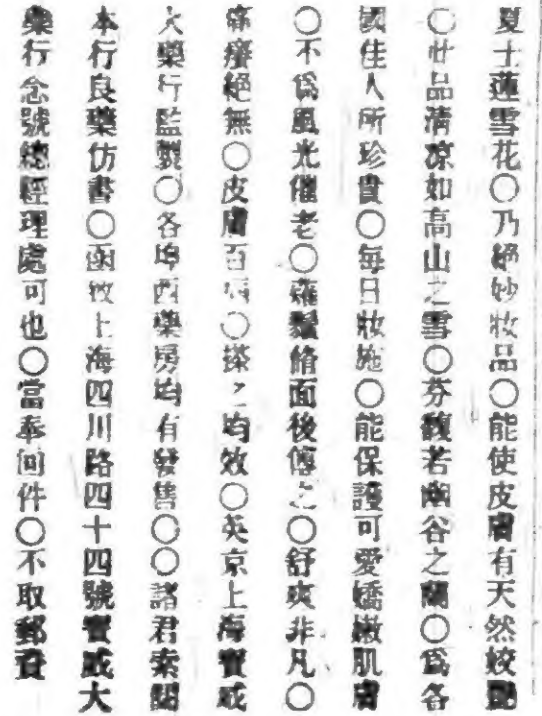 夏士蓮雪花〇乃絕妙妝品〇能使皮膚有天然姣艷
〇此品清凉如高山之雪〇芬馥若幽谷之蘭〇爲各
國佳人所珍貴〇每日妝施〇能保護可愛嬌嫩肌膚
〇不爲風光催老〇薙鬚脩面後傅之〇舒爽非凡〇
痛癢絕無〇皮膚百病〇搽之均效〇英京上海寳威
大藥行監製〇各埠西藥房均有發售〇〇諸君索閱
本行良藥仿書〇函致上海四川路四十四號寳威大
藥行念號總經理處可也〇當奉回件〇不取郵資